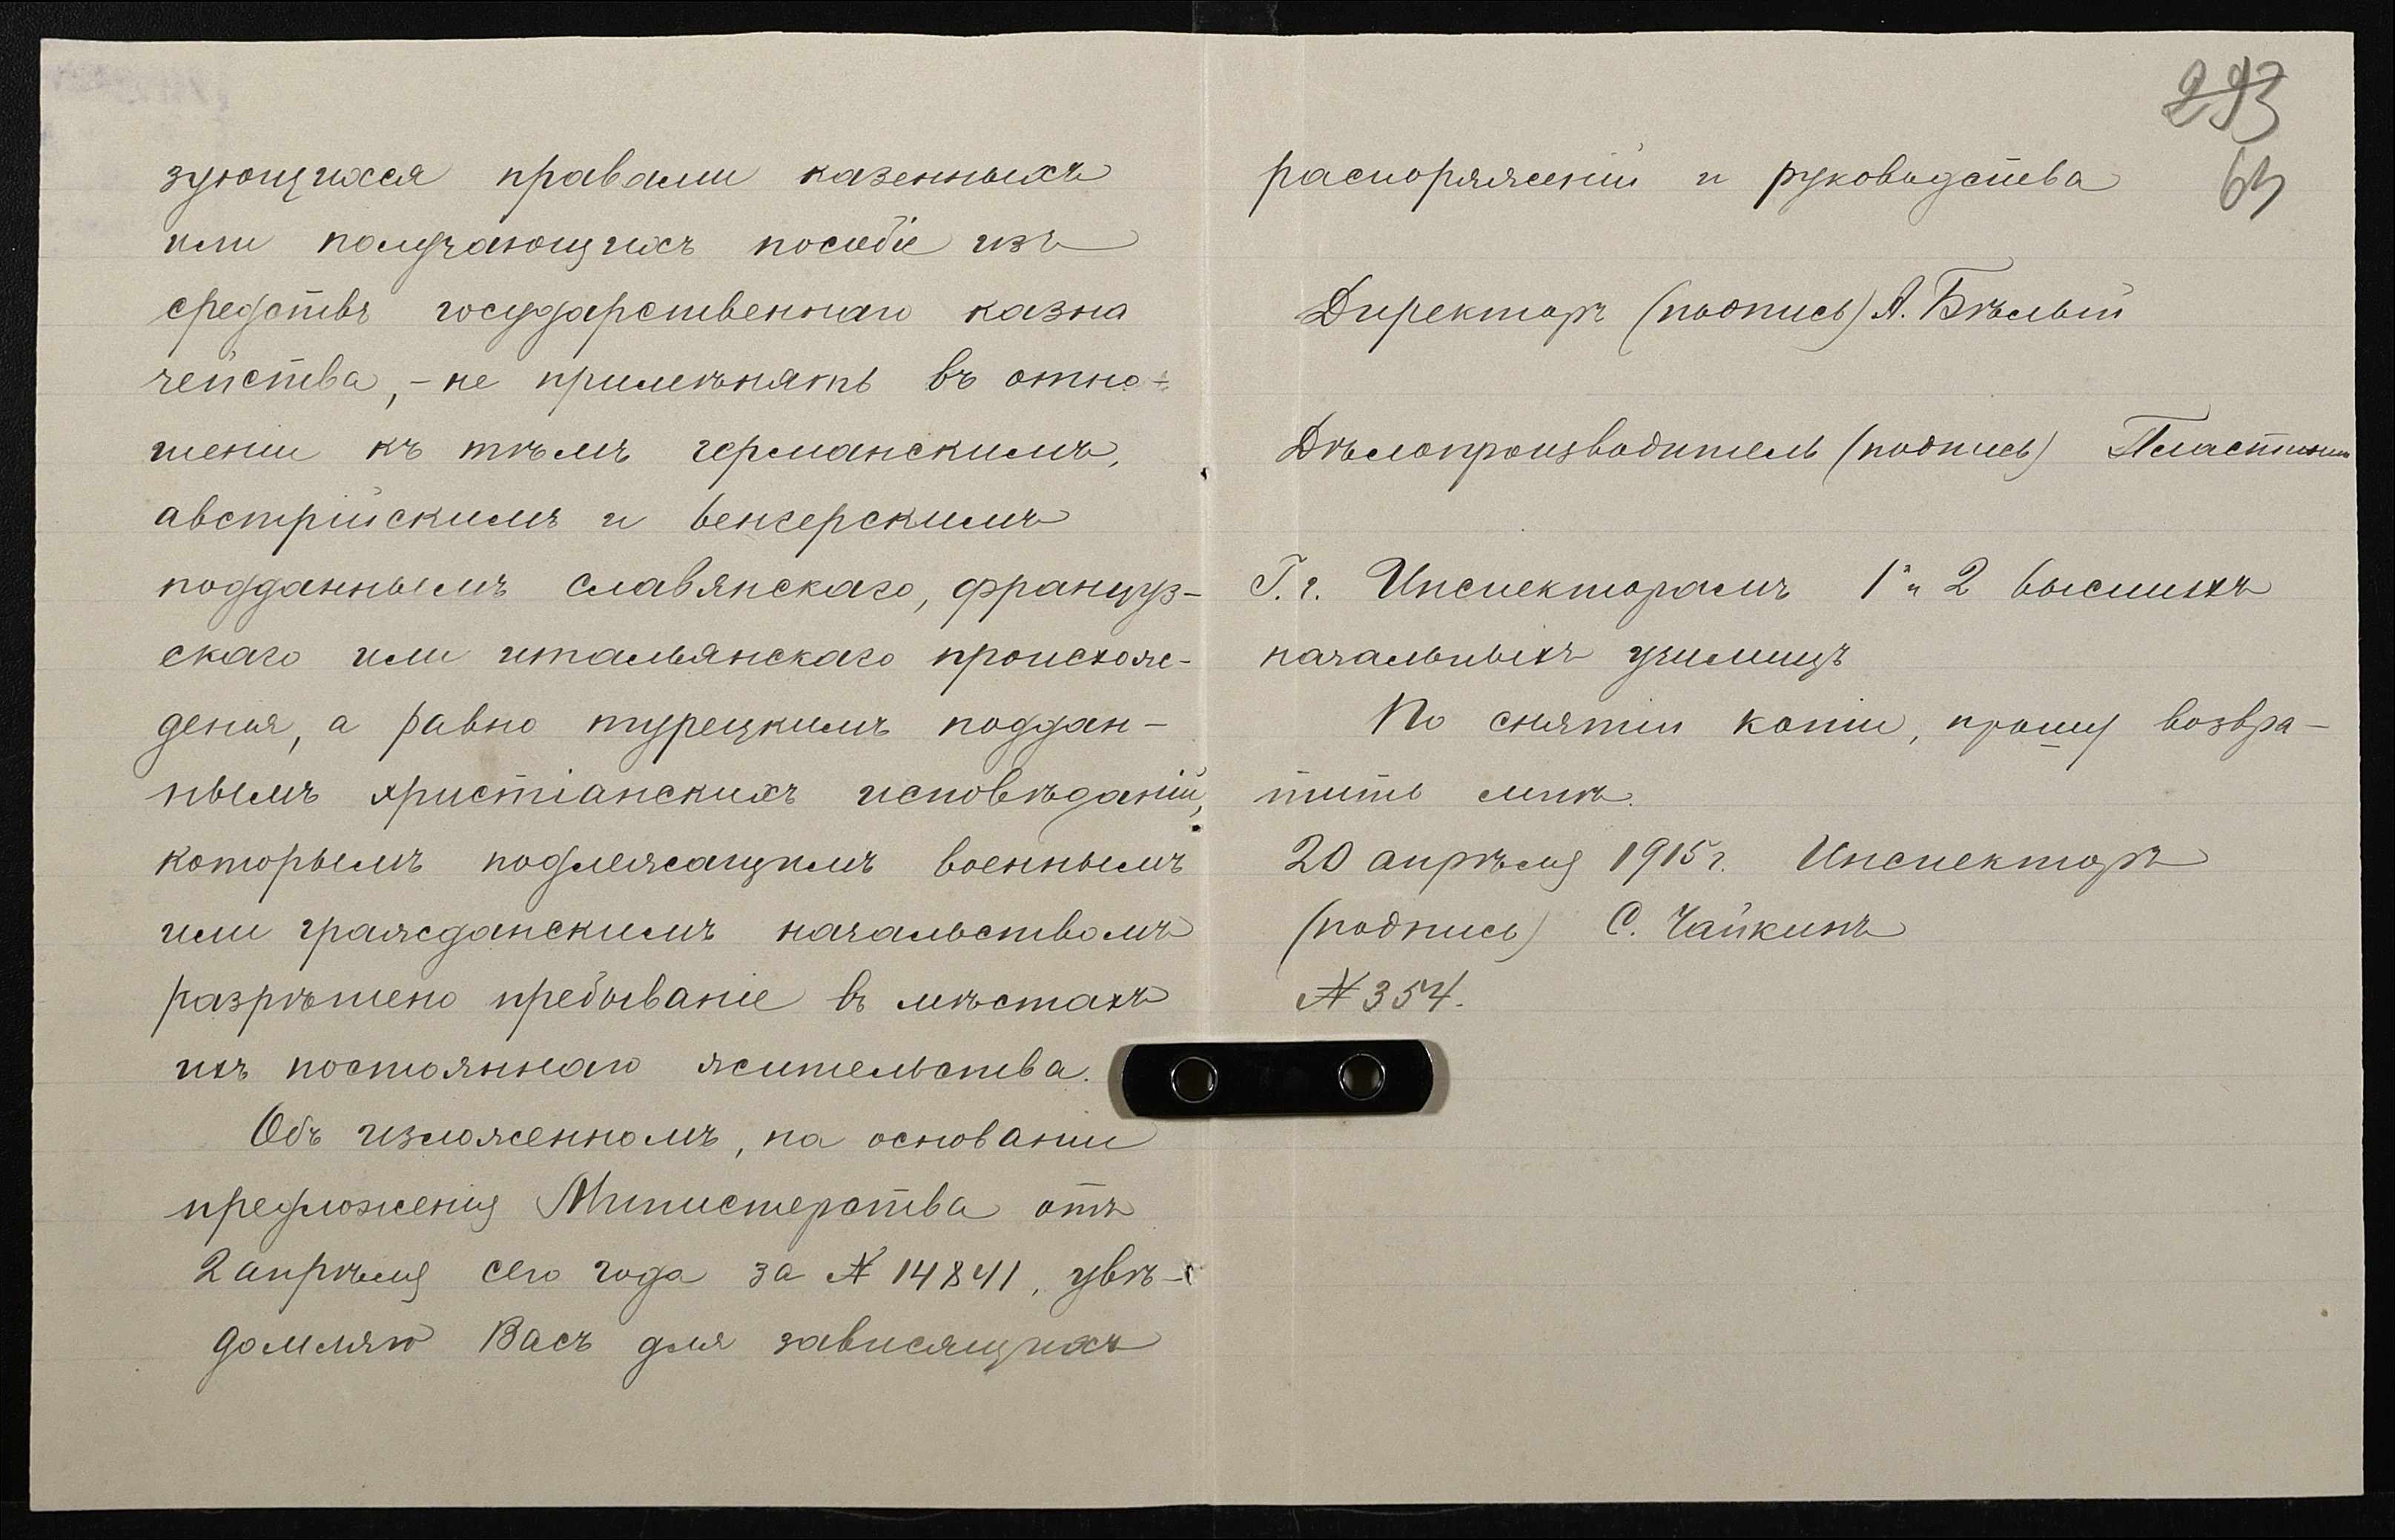 зующихся правами казенныхъ
или получающихъ пособіе изъ
средствъ государственнаго казна
чейства, - не примѣнять въ отно-
шеніи къ тѣмъ германскимъ,
австрійскимъ и венгерскимъ
подданнымъ славянскаго, француз-
скаго или итальянскаго происхож-
денія, а равно турецкимъ поддан-
нымъ христіанскихъ исповѣданій,
которымъ подлежащимъ военнымъ
или гражданскимъ начальствомъ
разрѣшено пребываніе въ мѣстахъ
ихъ постояннаго жительства.
Объ изложенномъ, на основаніи
предложенія Министерства отъ
2 апрѣля сего года за № 14841, увѣ-
домляю Васъ для зависящихъ
293
63
распоряженій и руководства
Директоръ (подпись) А. Бѣлый
Дѣлопроизводитель (подпись) Пластинин
Г.г. Инспекторамъ 1 и 2 высшихъ
начальныхъ училищъ
По снятіи копіи, прошу возвра-
тить мнѣ.
20 апрѣля 1915 г. Инспекторъ
(подпись) С. Чайкинъ
№ 354.